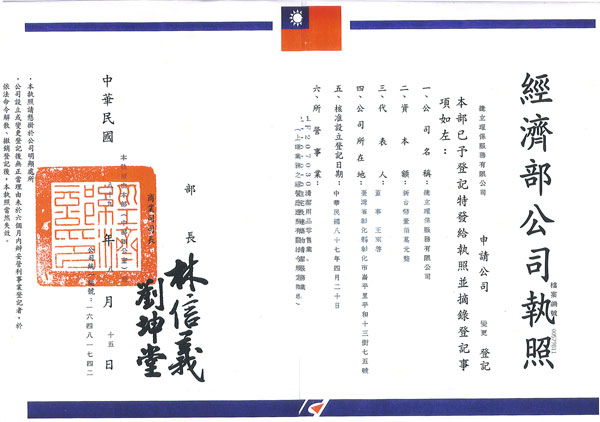 經濟部公司執照
檔案編號
捷立環保服務有限公司 申請公司 變更 登記
本部已予登記特發給執照並摘錄登記事
項如左：
一、公司名稱：捷立環保服務有限公司
二、資本額：新台幣
三、代表人：董事
四、公司所在地：臺灣省彰化縣彰化市南平里平和十三街七五號
五、核准設立登記日期：中華民國八十七年四月二十日
六、所營事業：
部長 林信義
商業司司長 劉坤堂
中華民國 年 月 十五 日
公司統一編號：一六四八一七四二
・本執照請懸掛於公司明顯處所
・公司設立或變更登記後無正當理由未於六個月內辦妥營利事業登記者，於
依法命令解散、撤銷登記後，本執照當然失效。